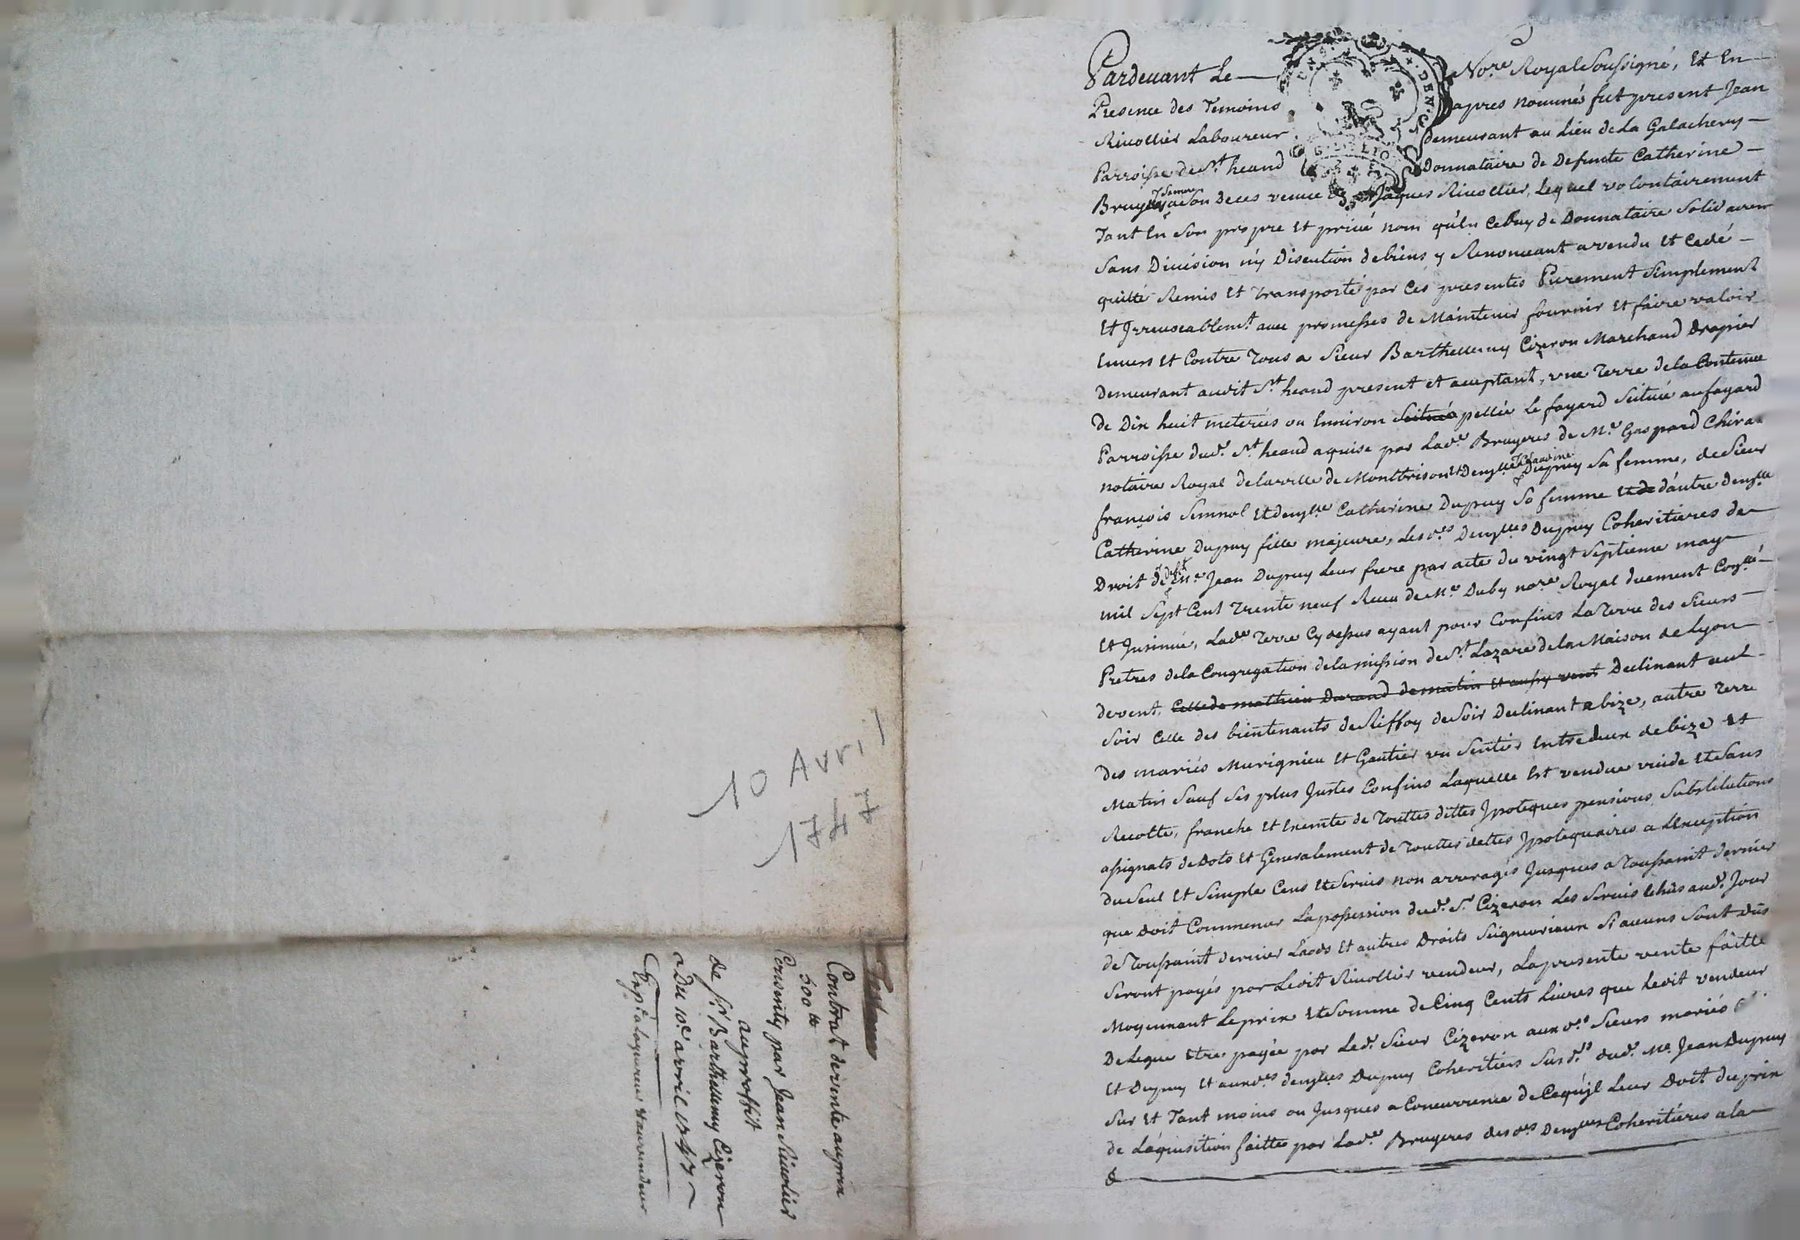 10 Avril
1747
Contrat de vente au prix
500 tt
Consenty par Jean Rivolier
au proffit
de Sr Barthellemy Cizeron
Du 10e avril 1747
Pardevant Le Nore Royal Soussigné, Et En
Presence des Temoins apres nommé fut present Jean
Rivollier Laboureur demeurant au Lieu de La Galachery
Parroisse de St heand Donnataire de Defunte Catherine
Bruyeres a son deces veuve de Jaques Rivollier, Lequel volontairement
Tant En Son propre Et privé nom qu'En Celuy de Donnataire Solidairemt
Sans Division ny Discution de biens y Renonceant a vendu Et Cedé
quitté Remis Et Transporté par Ces presentes Purement Simplement
Et Irrevocablemt avec promesses de Maintenir fournir Et faire valoir
Envers Et Contre Tous a Sieur Barthellemy Cizeron Marchand Drapier
Demeurant audit St heand present et aceptant, une Terre de la Contenue
de Dix huit meterées ou Environ apellée Le fayard Scituée au fayard
Parroisse dud. St heand aquise par Lade Bruyeres de Me Gaspard Chirat
notaire Royal de la ville de Montbrison Et Deuylle Dupuy Sa femme, de Sieur
françois Simnol Et deuylle Catherine Dupuy Sa femme d'autre deuylle
Catherine Dupuy fille majeure, Lesdes Deuylles Dupuy Coheritieres de
Droit de Me Jean Dupuy Leur frere par acte du vingt Septieme may
mil Sept Cent Trente neuf Receu de Me Duby nore Royal duement Coollé
Et Insinué, Lade Terre Cy dessus ayant pour Confins La Terre des Sieurs
Pretres de la Congregation de la mission de St Lazare de la Maison de Lyon
de vent, Celle de mathieu Durand de matin Et aussy vent Declinant aud
Soir Celle des bientenants de Riffoy de Soir Declinant a bize, autre Terre
Des mariés Murignieu Et Gautier un Sentier Entredeux de bize Et
Matin Sauf Ses plus Justes Confins Laquelle Est vendue vuide Et Sans
Recolte, franche Et Exemte de Touttes dettes Ipoteques pensions Substitutions
assignats de Dots Et Generalement de Touttes dettes Ipotequaires a L'Exception
du Seul Et Simple Cens Et Servis non arreragés Jusques a Toussaint dernier
que doit Commencer La possession dud. Sr Cizeron Les Servis Echus aud. Jour
de Toussaint dernier Laods Et autres Droits Seigneuriaux Si aucuns Sont Dûs
Seront payés par Ledit Rivollier vendeur, La presente vente faitte
Moyennant Le prix Et Somme de Cinq Cents Livres que Ledit vendeur
Delegue Etre payée par Led. Sieur Cizeron auxds Sieurs mariés
Et Dupuy Et auxdes deuylles Dupuy Coheritiers Susds dud. Me Jean Dupuy
Sur Et Tant moins ou Jusques a Concurrence de Cequ'il Leur Doit du prix
de L'aquisition faitte par Lade Bruyeres desdes Deuylles Coheritieres a la